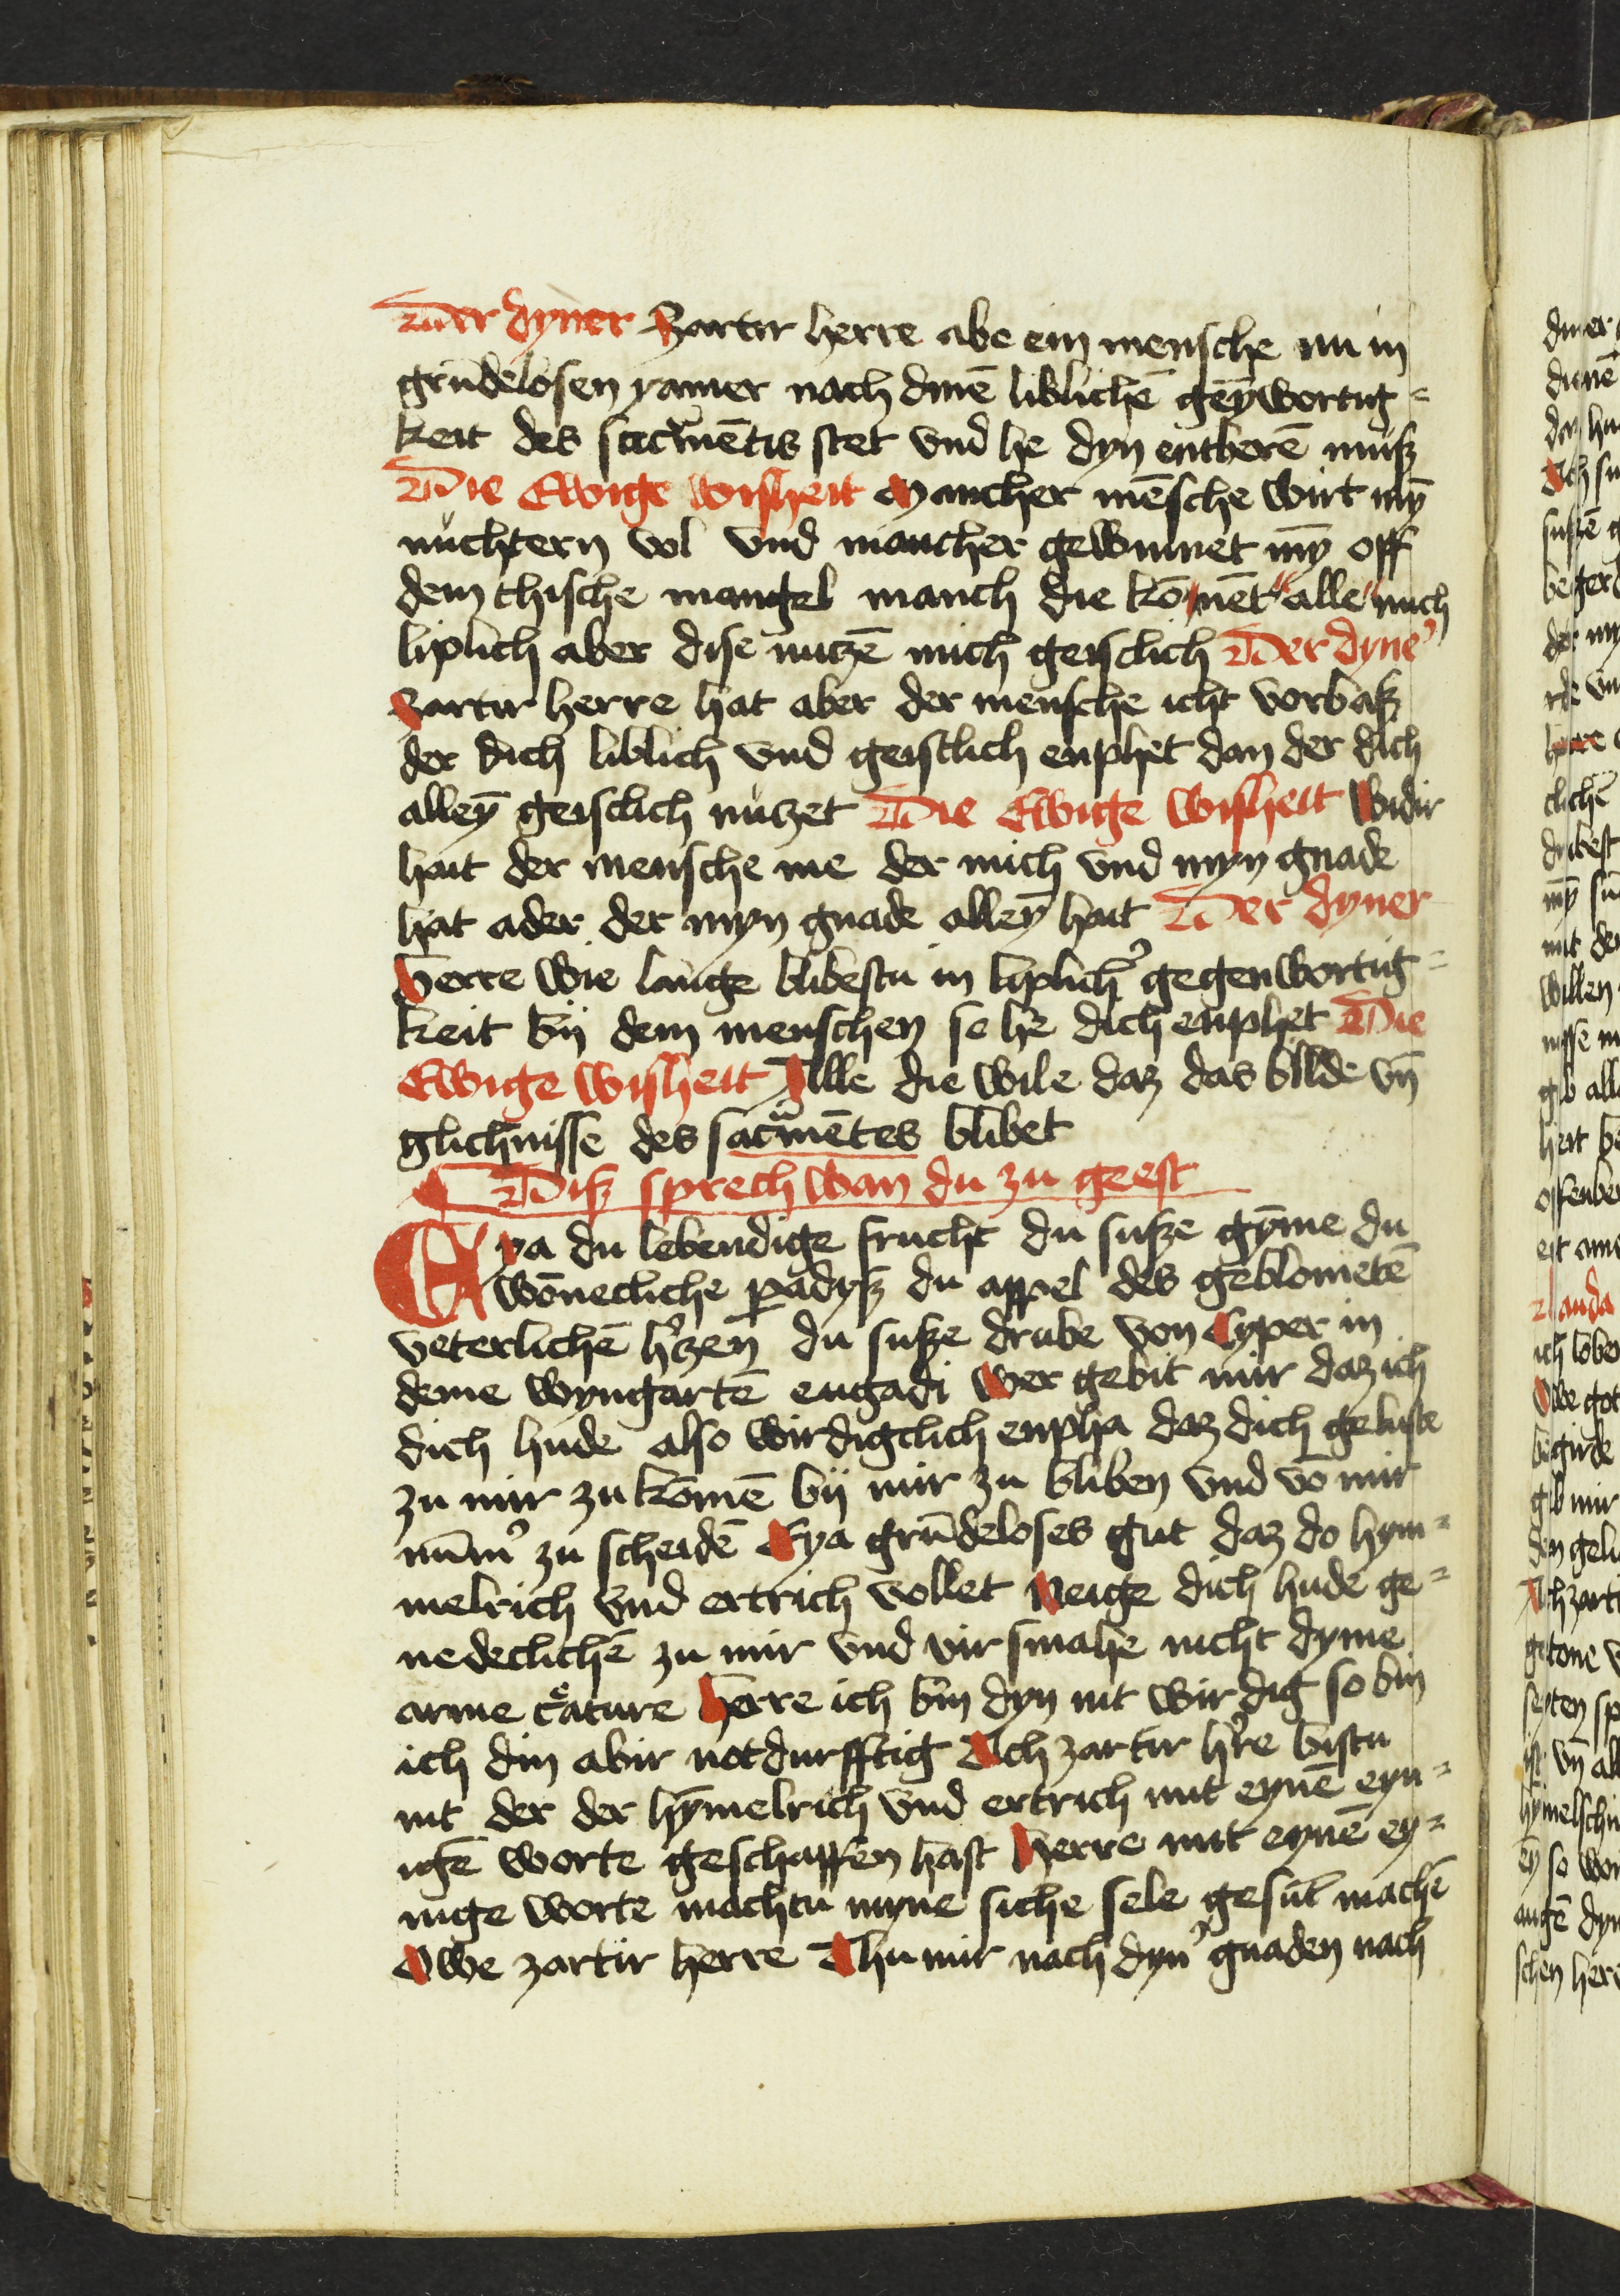 Der dyner Zartir herre abe ein mensche nu in
grūdelosen yamer nach dinē liblichē gēywortig=
keit des sacᵃmētis stet vnd he dyn entberē muß
Die Ewige wisheit Mancher mēsche wirt mȳ
nuchtern vol vnd mancher gewinnet mȳ off
dem thische mangel manch die kōmēt alle mich
liplich aber dise nutzē mich geisclich Der dyne᾿
Zartir herre hat aber der mensche icht vorbaß
der dich liblich vnd geistlich enphet dan der dich
alleȳ geisclich nutzet Die Ewige wisheit Widir
hait der mensche me der mich vnd myn gnade
hat ader der myn gnade alleȳ hait Der dyner
Herre wie lange blibestu in liplich᾿ gegenwortig=
keit bij dem menschen so he dich enphet Die
Ewige wisheit Alle die wile daz das bilde vn̄
glichnisse des sacᵃmētes blibet
Diß sprech wan du zu geest
Eya du lebendige frucht du suße gȳme du
wōnecliche padyß du appel des geblometē
veterlichē h᾿zen du suße drube von Cyper in
deme wyngartē engadi Wer gebit mir daz ich
dich hude also wirdigclich enpha daz dich geluste
zu mir zu komē bij mir zu bliben vnd vō mir
nūm᾿ zu scheidē Eya grūdeloses gut daz do hym=
melrich vnd ertrich vollet Neige dich hude ge=
nedeclichē zu mir vnd vir smahe nicht dyme
arme cͤature Herre ich bin dyn nit wirdig so bin
ich din abir notdurfftig Ach zartir h᾿re bistu
nit der der hȳmelrich vnd ertrich mit eynē eyn=
igē worte geschaffen hast Herre mit eynē ey=
nige worte machtu myne siche sele gesūt machē
Owe zartir herre Thu mir nach dyn᾿ gnaden nach